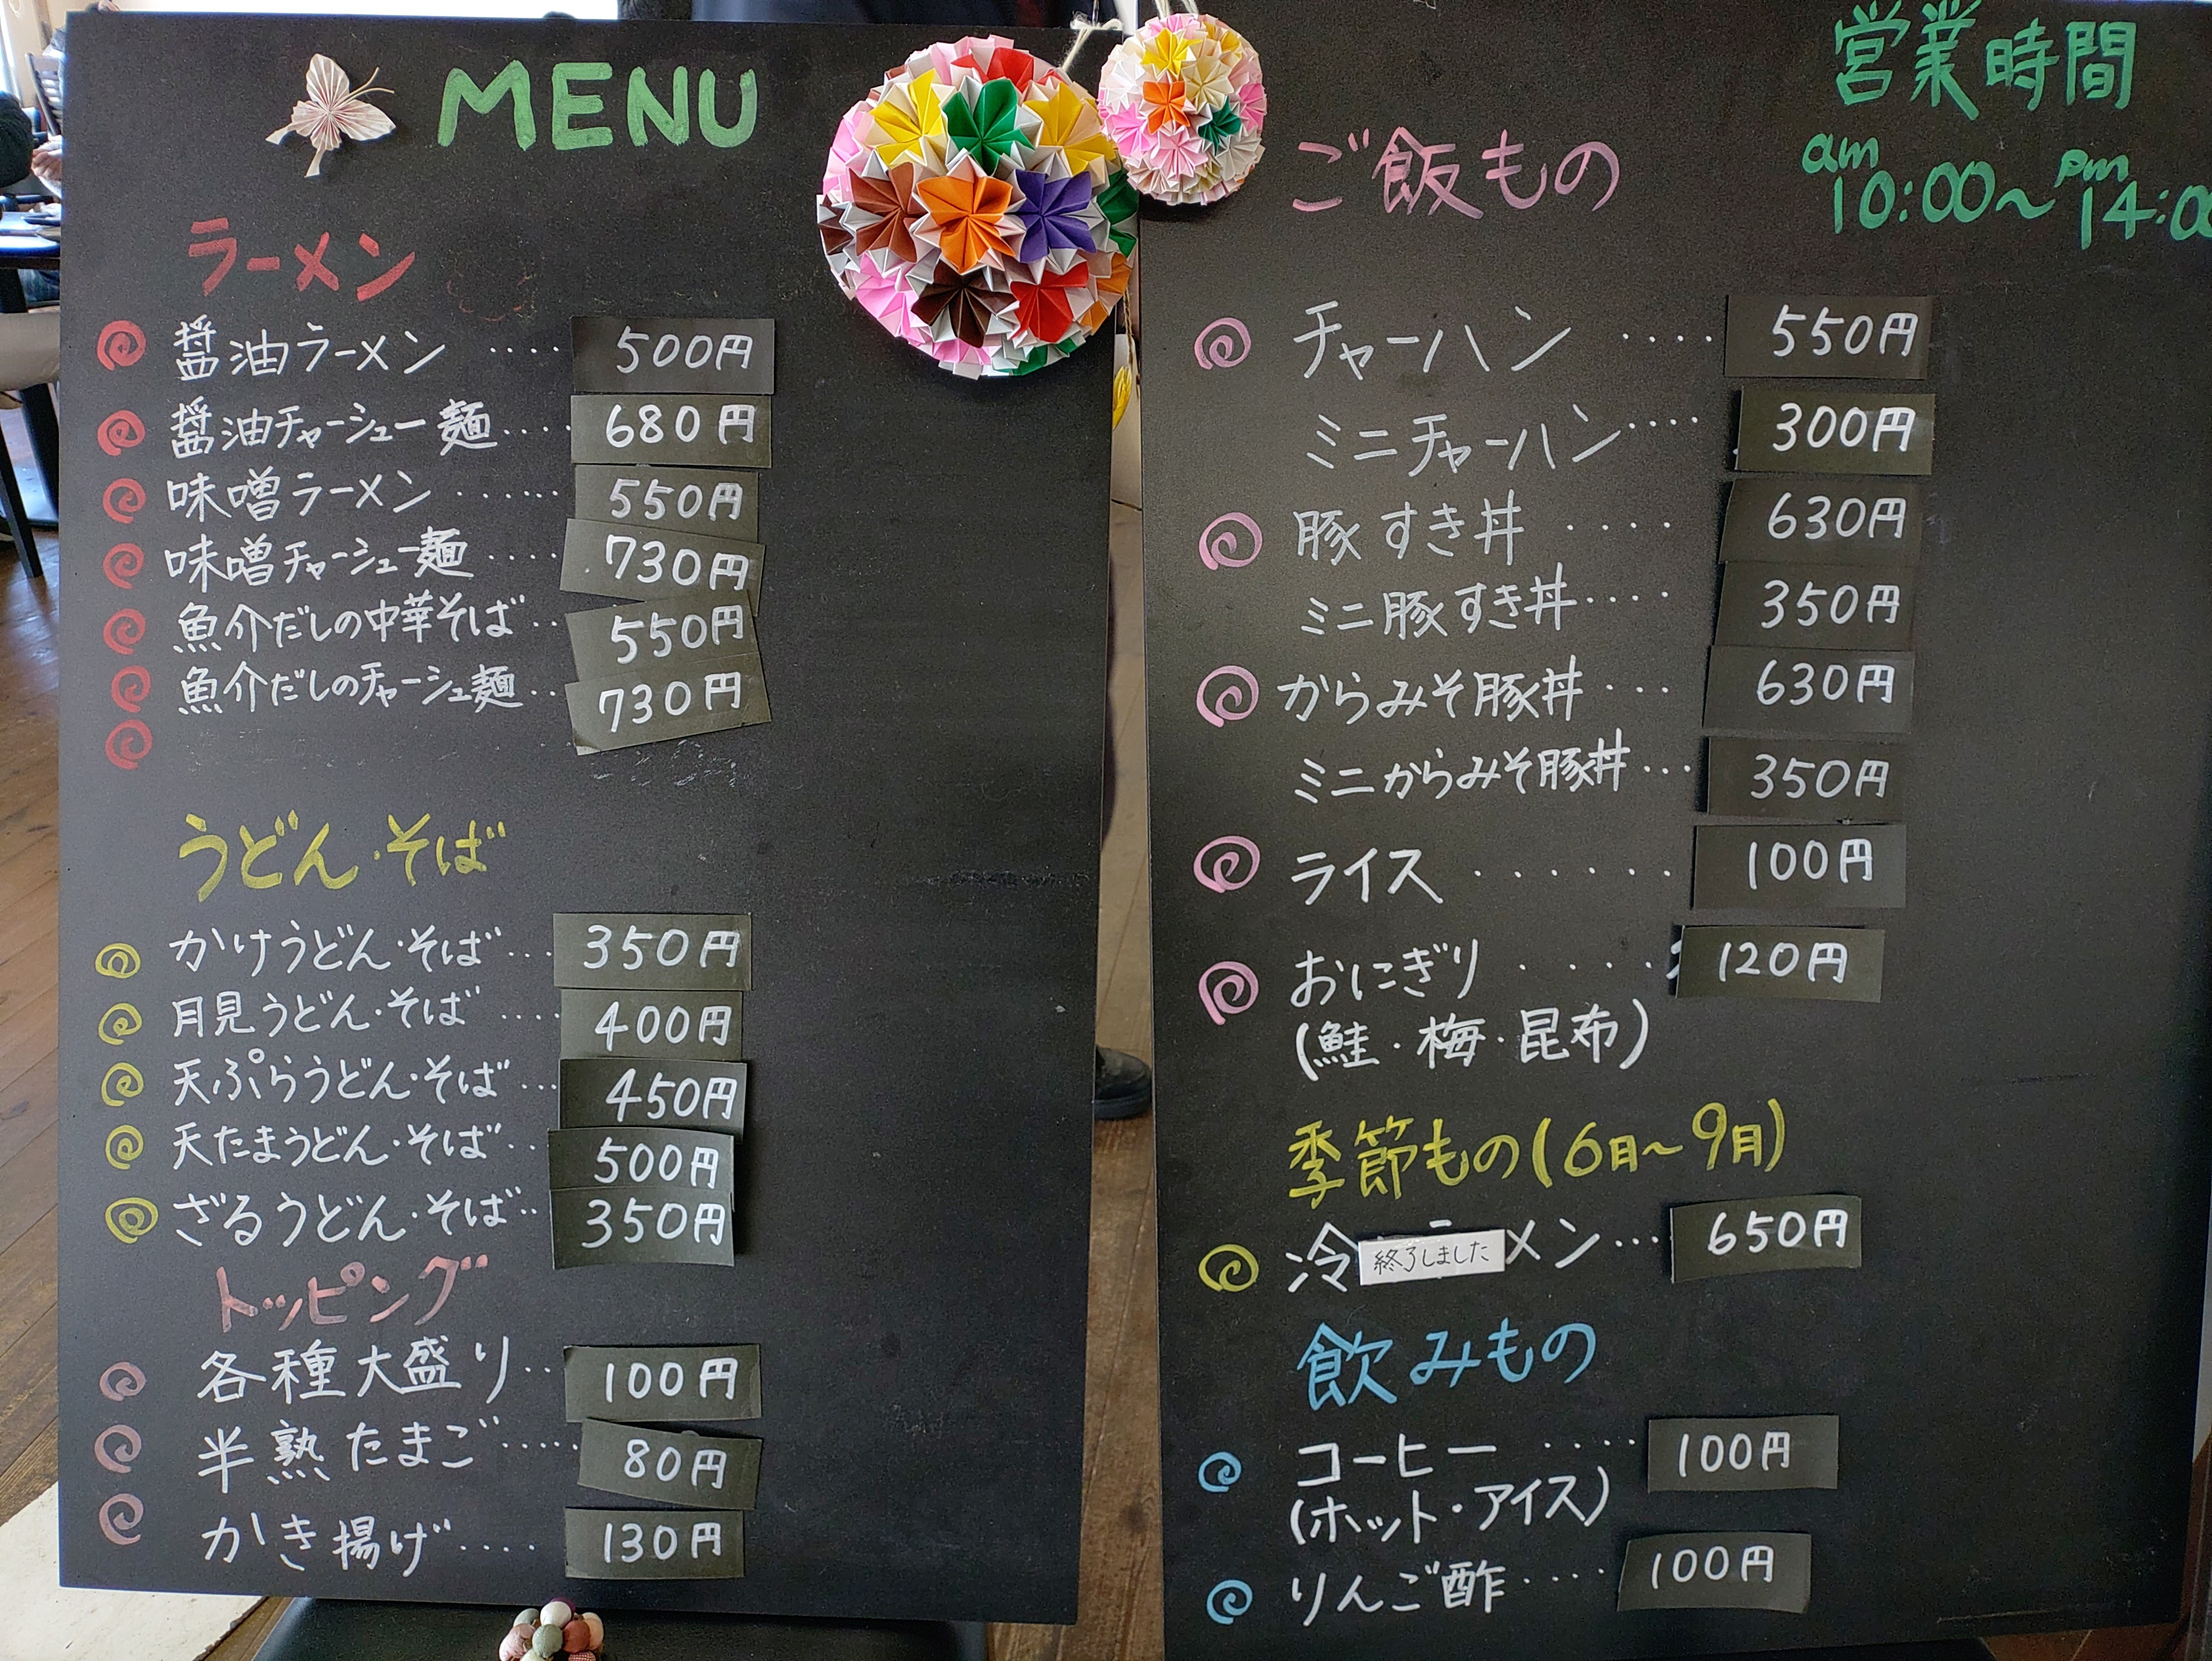 MENU
ラーメン
醤油ラーメン ・・・・ 500円
醤油チャーシュー麺 ・・・・ 680円
味噌ラーメン ・・・・・ 550円
味噌チャーシュー麺 ・・・・ 730円
魚介だしの中華そば ・・ 550円
魚介だしのチャーシュー麺 ・・ 730円
うどん・そば
かけうどん・そば ・・・ 350円
月見うどん・そば ・・・・ 400円
天ぷらうどん・そば ・・・ 450円
天たまうどん・そば ・・ 500円
ざるうどん・そば ・・ 350円
トッピング
各種大盛り ・・ 100円
半熟たまご ・・・・・ 80円
かき揚げ ・・・・ 130円
営業時間
am 10:00〜pm 14:00
ご飯もの
チャーハン ・・・・ 550円
ミニチャーハン ・・・・ 300円
豚すき丼 ・・・・ 630円
ミニ豚すき丼 ・・・・ 350円
からみそ豚丼 ・・・ 630円
ミニからみそ豚丼 ・・・ 350円
ライス ・・・・・・ 100円
おにぎり ・・・・・ 120円
(鮭・梅・昆布)
季節もの(6月〜9月)
冷 終了しました メン ・・・ 650円
飲みもの
コーヒー ・・・・ 100円
(ホット・アイス)
りんご酢 ・・・・ 100円